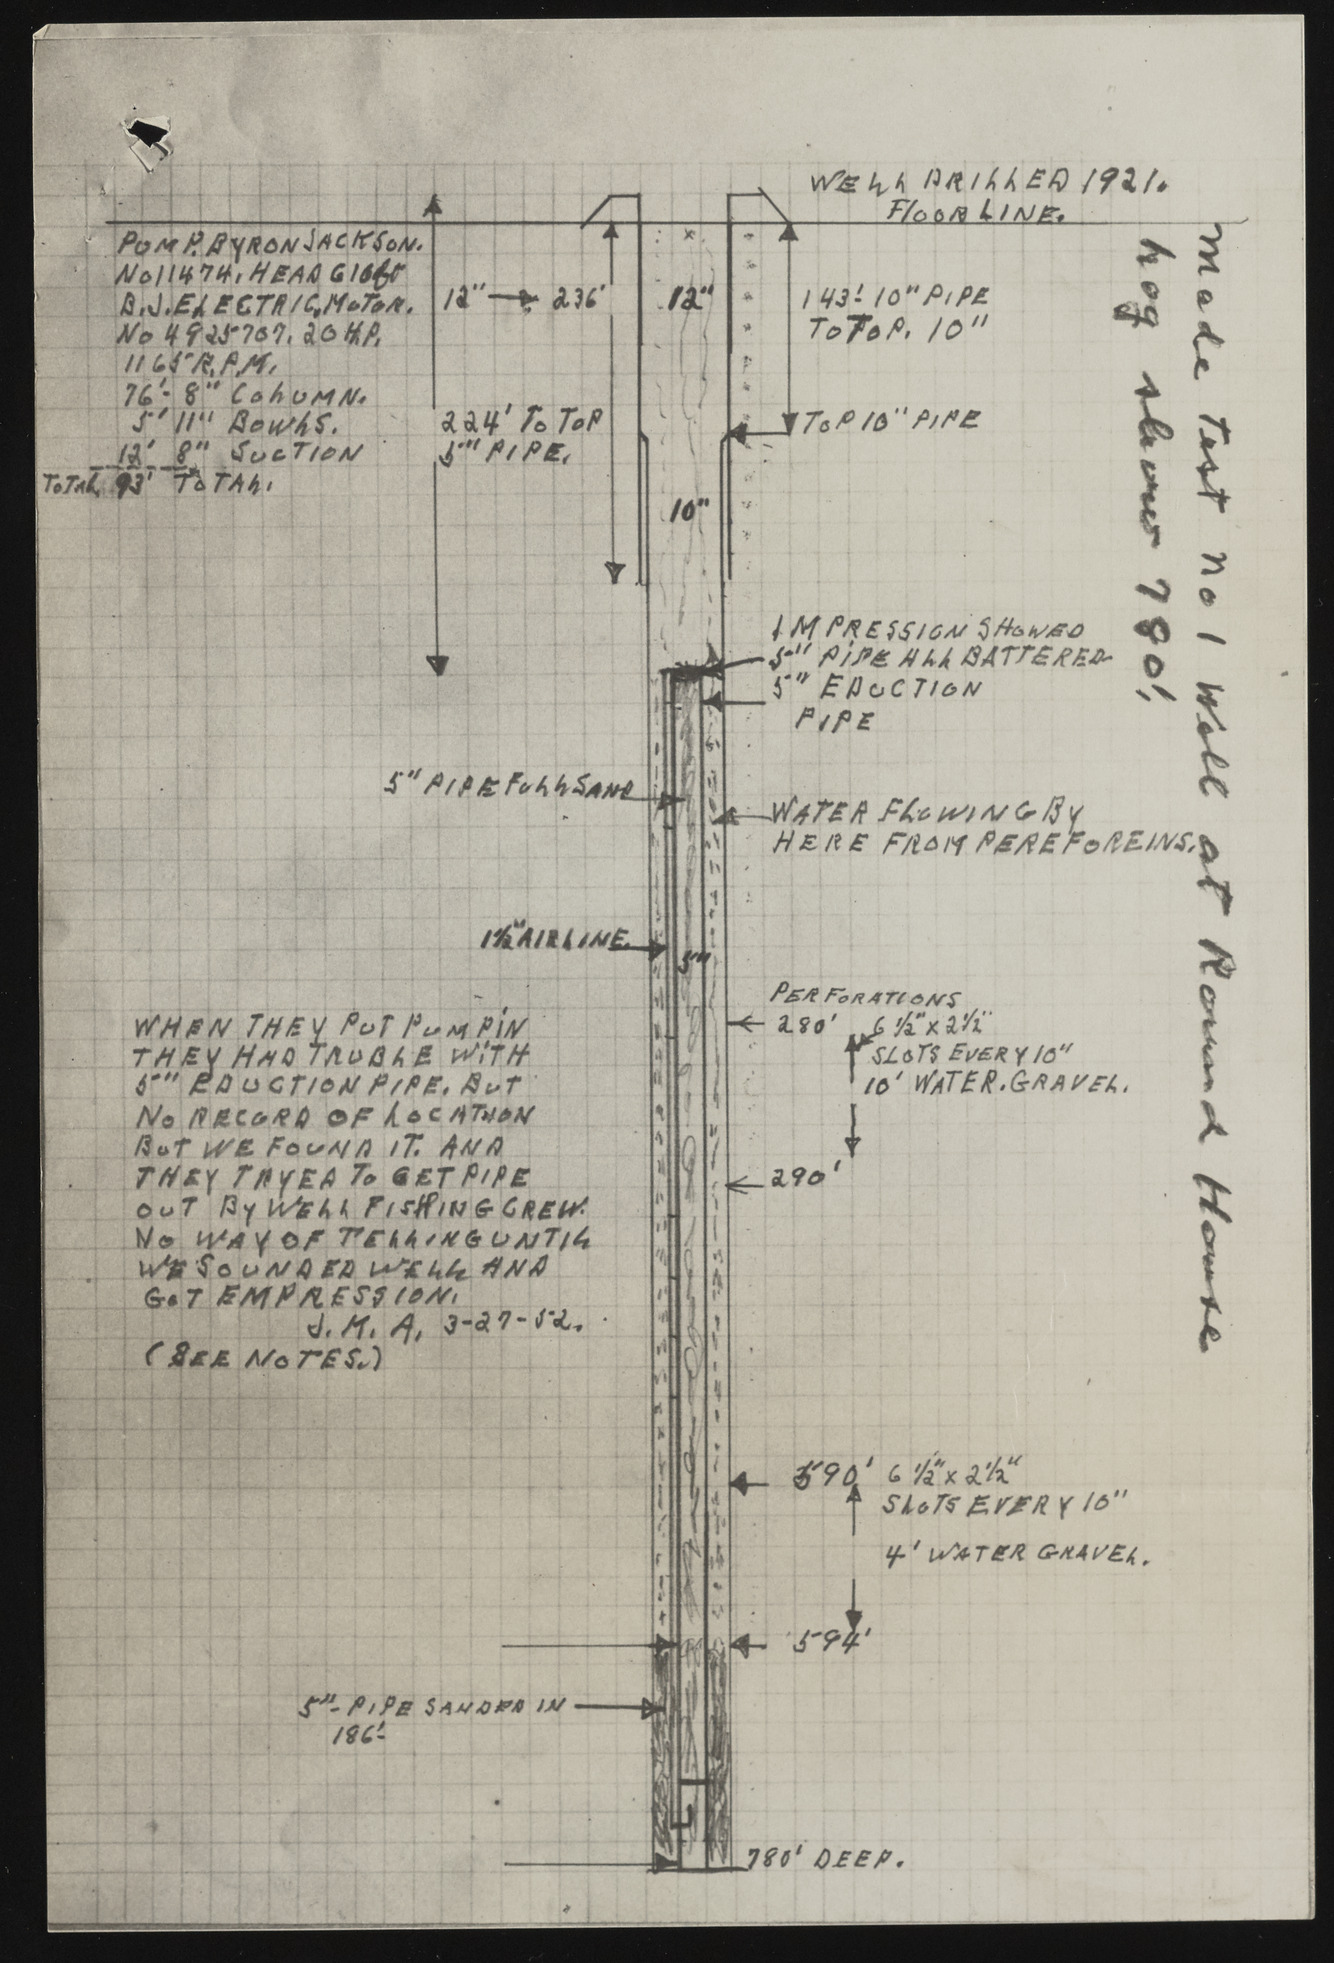 WELL DRILLED 1921.
FLOOR LINE.
PUMP. BYRON JACKSON.
No 11474. HEAD
B.J. ELECTRIC, MOTOR.
No 4925707. 20 H.P.
1165 R.P.M.
76'- 8" COLUMN.
5' 11" BOWLS.
12' 8" SUCTION
TOTAL 93' TOTAL.
12" → 236'
224' TO TOP
5" PIPE.
12"
10"
143'- 10" PIPE
TO TOP. 10"
TOP 10" PIPE
IMPRESSION SHOWED
5" PIPE ALL BATTERED
5" EDUCTION
PIPE
5" PIPE FULL SAND
WATER FLOWING BY
HERE FROM PEREFOREINS.
1½" AIRLINE.
5"
PERFORATIONS
280' 6 ½" x 2½"
SLOTS EVERY 10"
10' WATER. GRAVEL.
290'
WHEN THEY PUT PUMP IN
THEY HAD TRUBLE WITH
5" EDUCTION PIPE. BUT
NO RECORD OF LOCATION
BUT WE FOUND IT. AND
THEY TRYED TO GET PIPE
OUT BY WELL FISHING CREW.
NO WAY OF TELLING UNTIL
WE SOUNDED WELL AND
GOT EMPRESSION.
J. M. A. 3-27-52.
(SEE NOTES.)
590' 6 ½" x 2½"
SLOTS EVERY 10"
4' WATER GRAVEL.
594'
5"- PIPE SANDED IN
186'-
780' DEEP.
Made test No 1 Well at Round House
log shows 780'